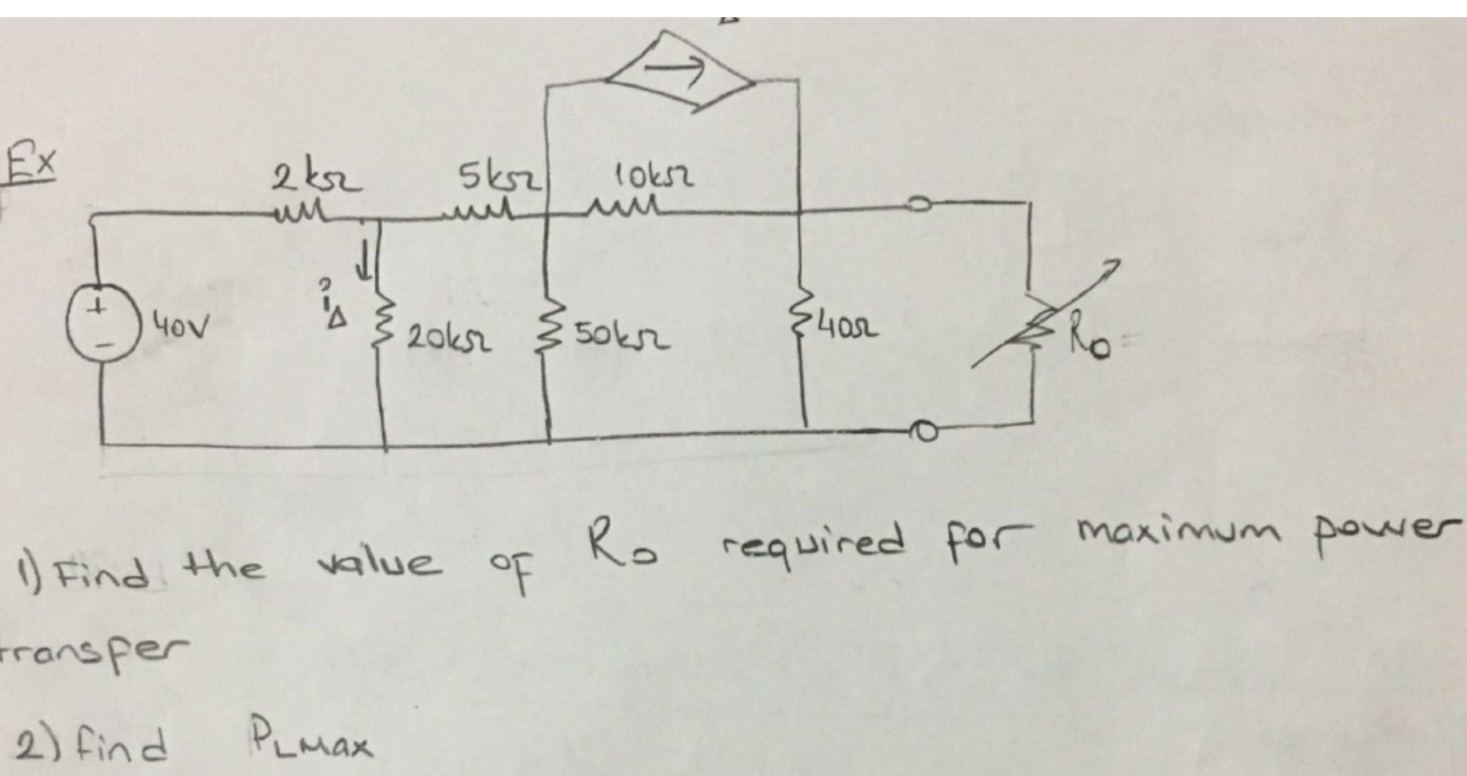 Δ
Ex
2kΩ 5kΩ 10kΩ
+
−
40V
iΔ
20kΩ
50kΩ
40Ω
Ro
1) Find the value of Ro required for maximum power
transfer
2) find PLMax